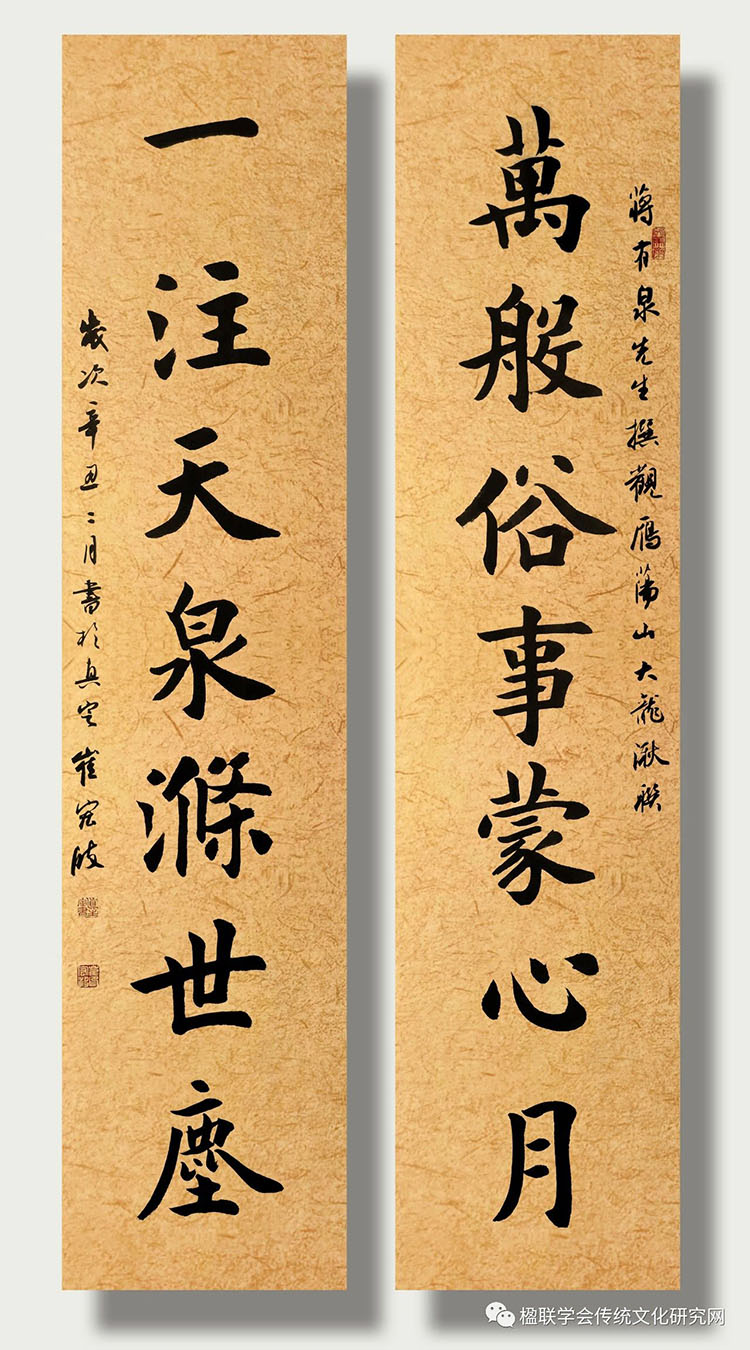 萬般俗事蒙心月
蔣有泉先生撰觀雁蕩山大龍湫联
一注天泉滌世塵
歲次辛丑二月書於真定崔宏歧
楹联学会传统文化研究网